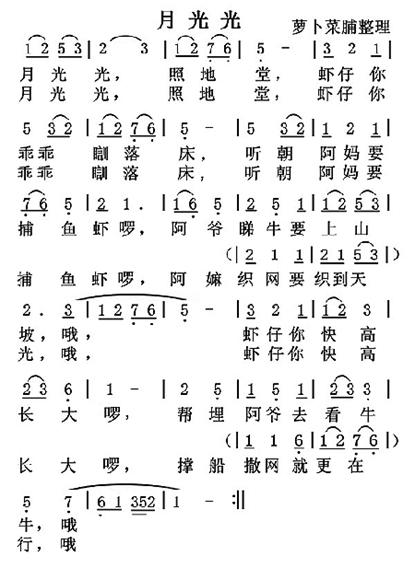 月光光
萝卜菜脯整理
1 2 5 3 | 2 3 | 1 2 7 6 | 5 - | 3 2 1 |
月光光， 照地堂， 虾仔你
月光光， 照地堂， 虾仔你
5 3 2 | 1 2 7 6 | 5 - | 5 3 2 | 1 2 1 |
乖乖瞓落床， 听朝阿妈要
乖乖瞓落床， 听朝阿妈要
7 6 5 | 2 1. | 1 6 5 | 2 5 | 1 5 3 |
捕鱼虾啰，阿爷睇牛要上山
( | 2 1 1 | 2 1 5 3 )
捕鱼虾啰，阿嫲织网要织到天
2. 3 | 1 2 7 6 | 5 - | 3 2 1 | 1 2 3 |
坡，哦， 虾仔你快高
光，哦， 虾仔你快高
2 3 6 | 1 - | 2 5 | 1 5 1 | 2 3 5 |
长大啰， 帮埋阿爷去看牛
( | 1 1 6 | 1 2 7 6 )
长大啰， 撑船撒网就更在
5 7 | 6 1 352 | 1 - :||
牛，哦
行，哦